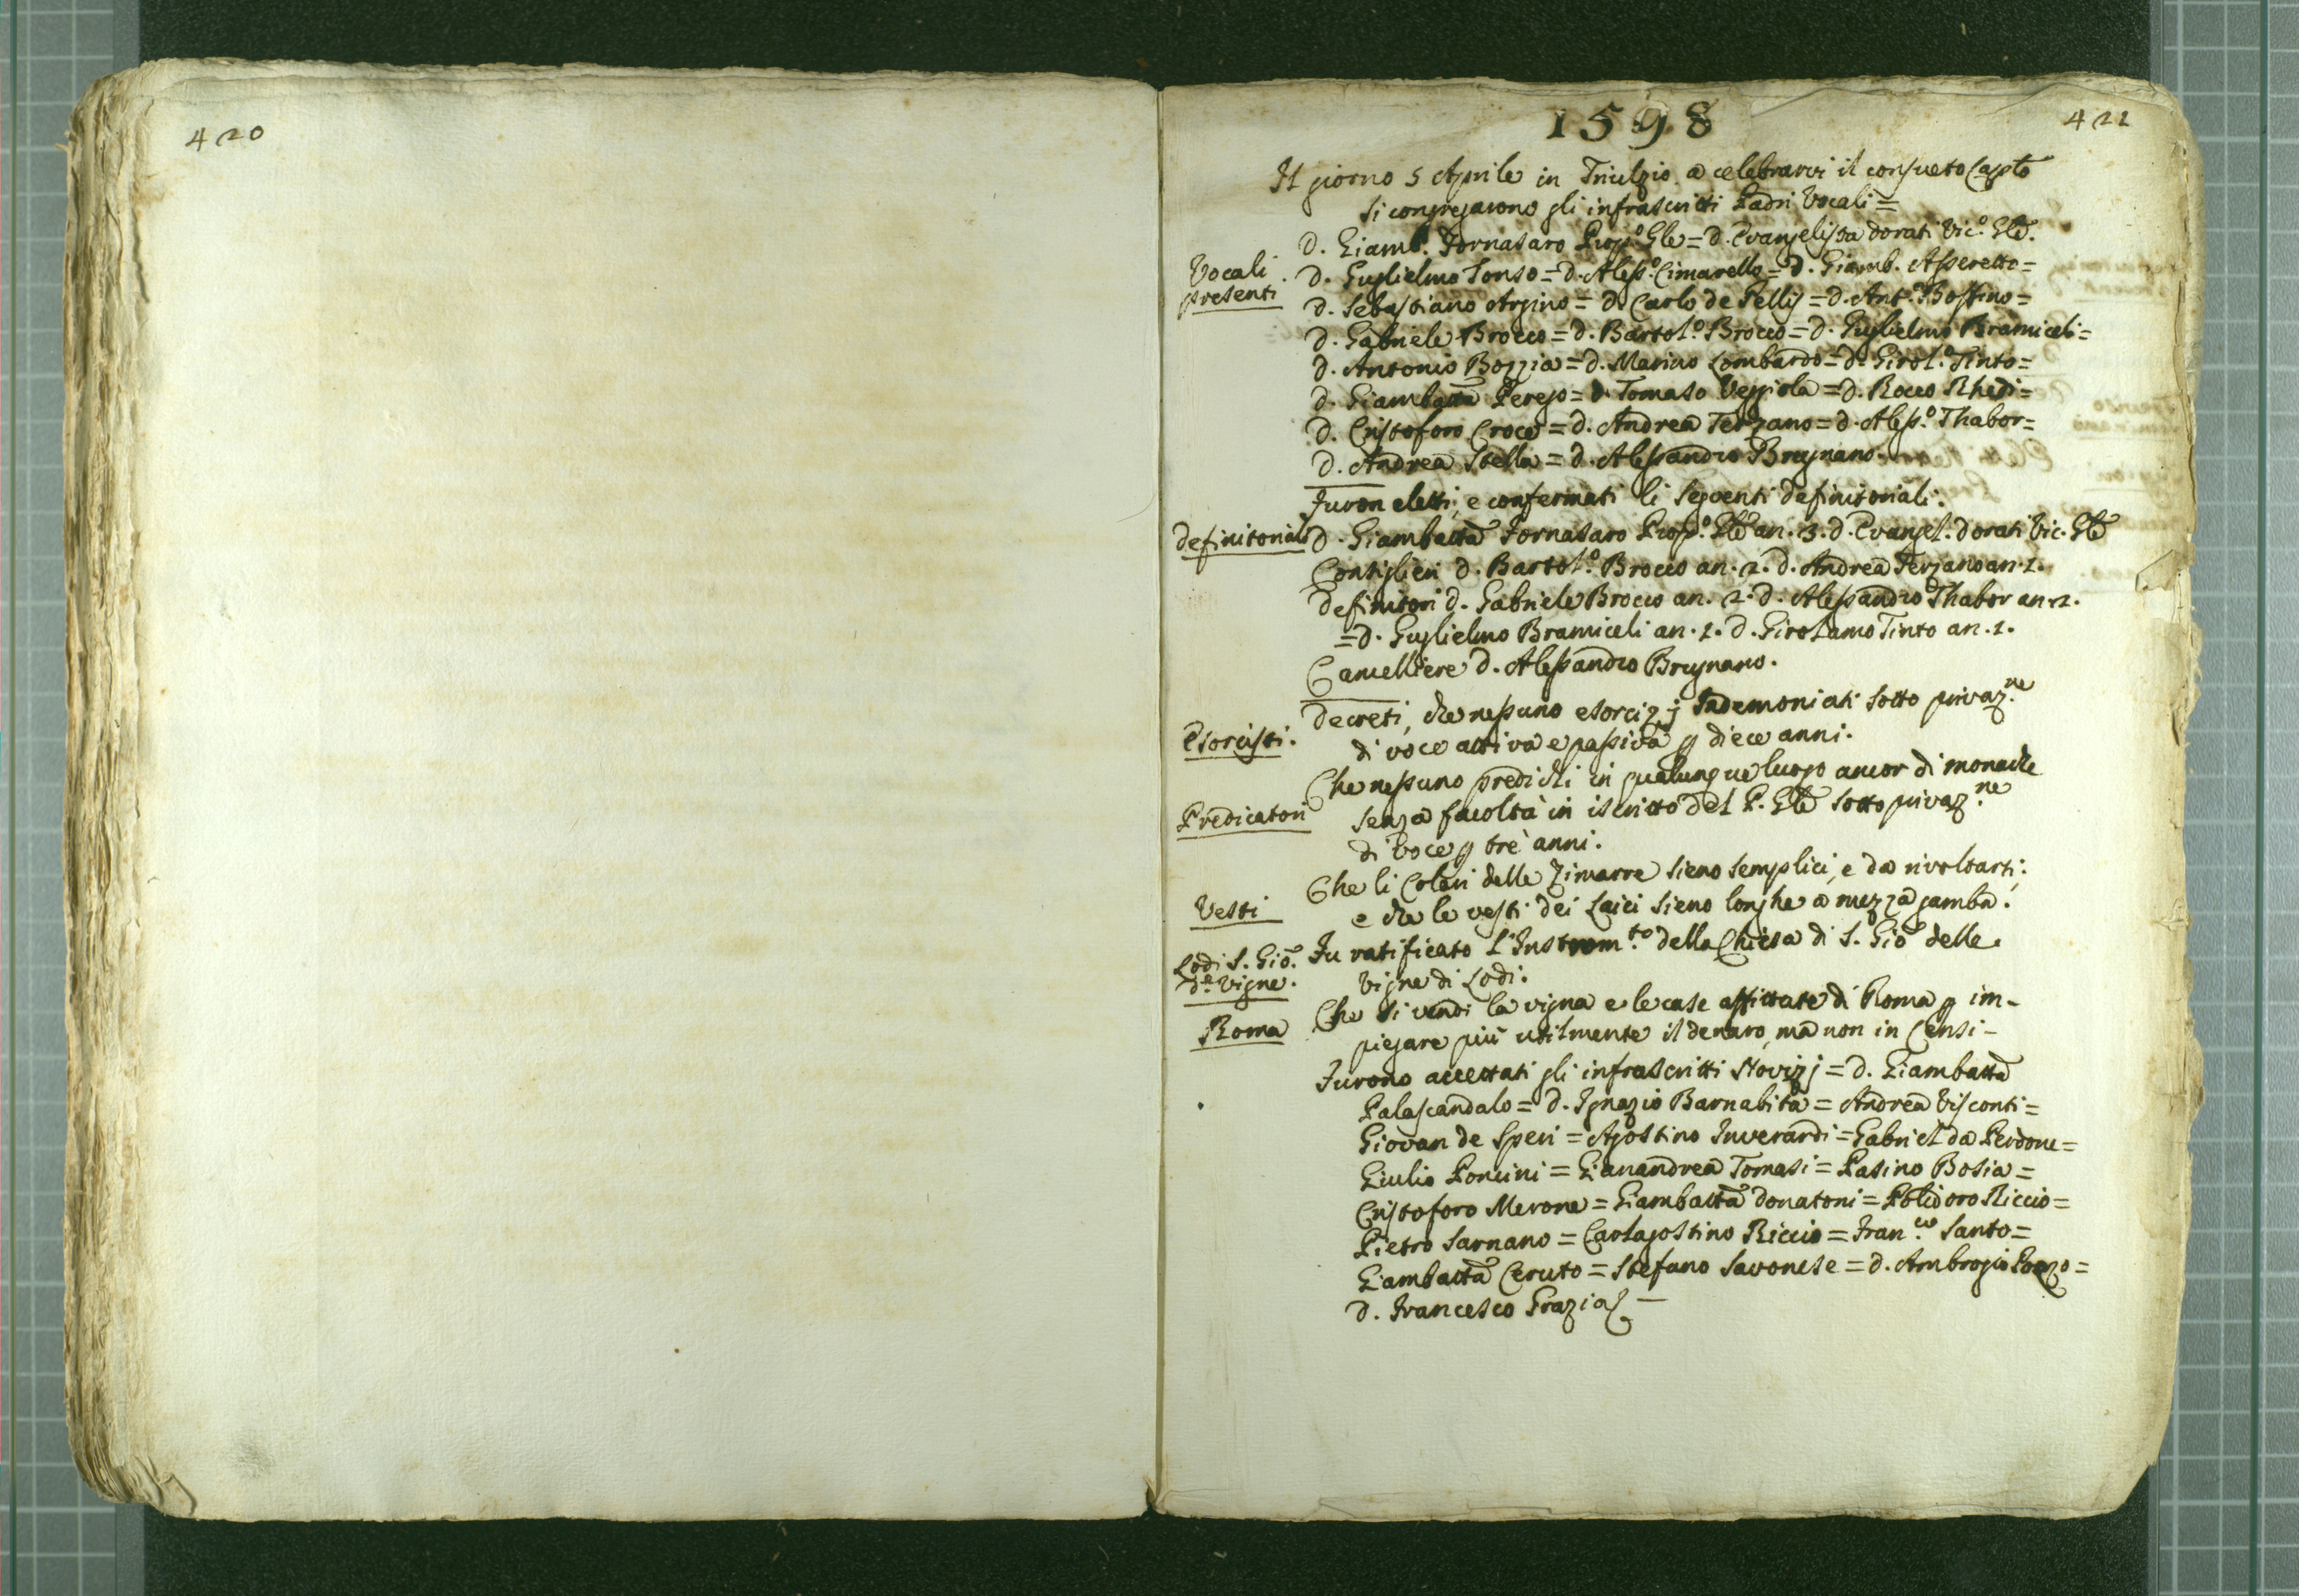 420
1598
421
Il giorno 5 Aprile in Triulzio a celebrarvi il consueto Caplo
si congregarono gli infrascritti Padri Vocali =
D. Giamb. Fornasaro Prop.º Gle = D. Evangelista Dorati Vic.º Gle.
Vocali
presenti
D. Guglielmo Tonso = D. Aless.º Cimarello = D. Giamb. Assereto =
D. Sebastiano Arpino = D. Carlo de Pellis = D. Ant.º Bossino =
D. Gabriele Brocco = D. Bartol.º Brocco = D. Guglielmo Bramiceli =
D. Antonio Bozzia = D. Marino Lombardo = D. Girol.º Tinto =
D. Giambatta Perego = D. Tomaso Veggiola = D. Rocco Rhedi =
D. Cristoforo Croce = D. Andrea Terzano = D. Aless.º Thabor =
D. Andrea Stella = D. Alessandro Brugnano.
Furon eletti, e confermati li seguenti definitoriali.
Definitoriali
D. Giambatta Fornasaro Prop.º Gle an. 3. D. Evangel. Dorati Vic. Gle
Consiglieri D. Bartol.º Brocco an. 2. D. Andrea Terzano an. 1.
Definitori D. Gabriele Brocco an. 2. D. Alessandro Thabor an. 2.
= D. Guglielmo Bramiceli an. 1. D. Girolamo Tinto an. 1.
Cancelliere D. Alessandro Brugnano.
Esorcisti.
Decreti, che nessuno esorcizzj Indemoniati sotto privaz.ne
di voce attiva e passiva p diece anni.
Predicatori
Che nessuno predichi in qualunque luogo ancor di monache
senza facoltà in iscritto del P. Gle sotto privaz.ne
di voce p trè anni.
Vesti
Che li Colari delle Zimarre sieno semplici, e da rivoltarsi;
e che le vesti dei Laici sieno longhe a mezza gamba.
Lodi S. Gio.
d.e Vigne.
Fu ratificato l'Instrom.to della Chiesa di S. Gio delle
Vigne di Lodi.
Roma
Che si vendi la vigna e le case affittate di Roma p im-
piegare più utilmente il denaro, ma non in Censi -
Furono accettati gli infrascritti Novizj = D. Giambatta
Palascandalo = D. Ignazio Barnabita = Andrea Visconti =
Giovan de Speri = Agostino Inverardi = Gabriel da Perdone =
Giulio Poncini = Gianandrea Tomasi = Pasino Bosia =
Cristoforo Merone = Giambatta Donatoni = Polidoro Riccio =
Pietro Sarnano = Carlagostino Riccio = Fran.co Santo =
Giambatta Ceruto = Stefano Savonese = D. Ambrogio Pozzo =
D. Francesco Grazia -